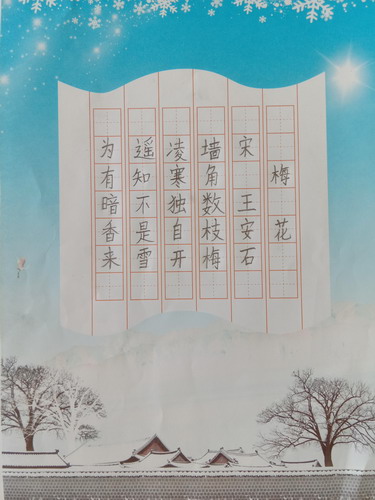 梅花
宋 王安石
墙角数枝梅
凌寒独自开
遥知不是雪
为有暗香来